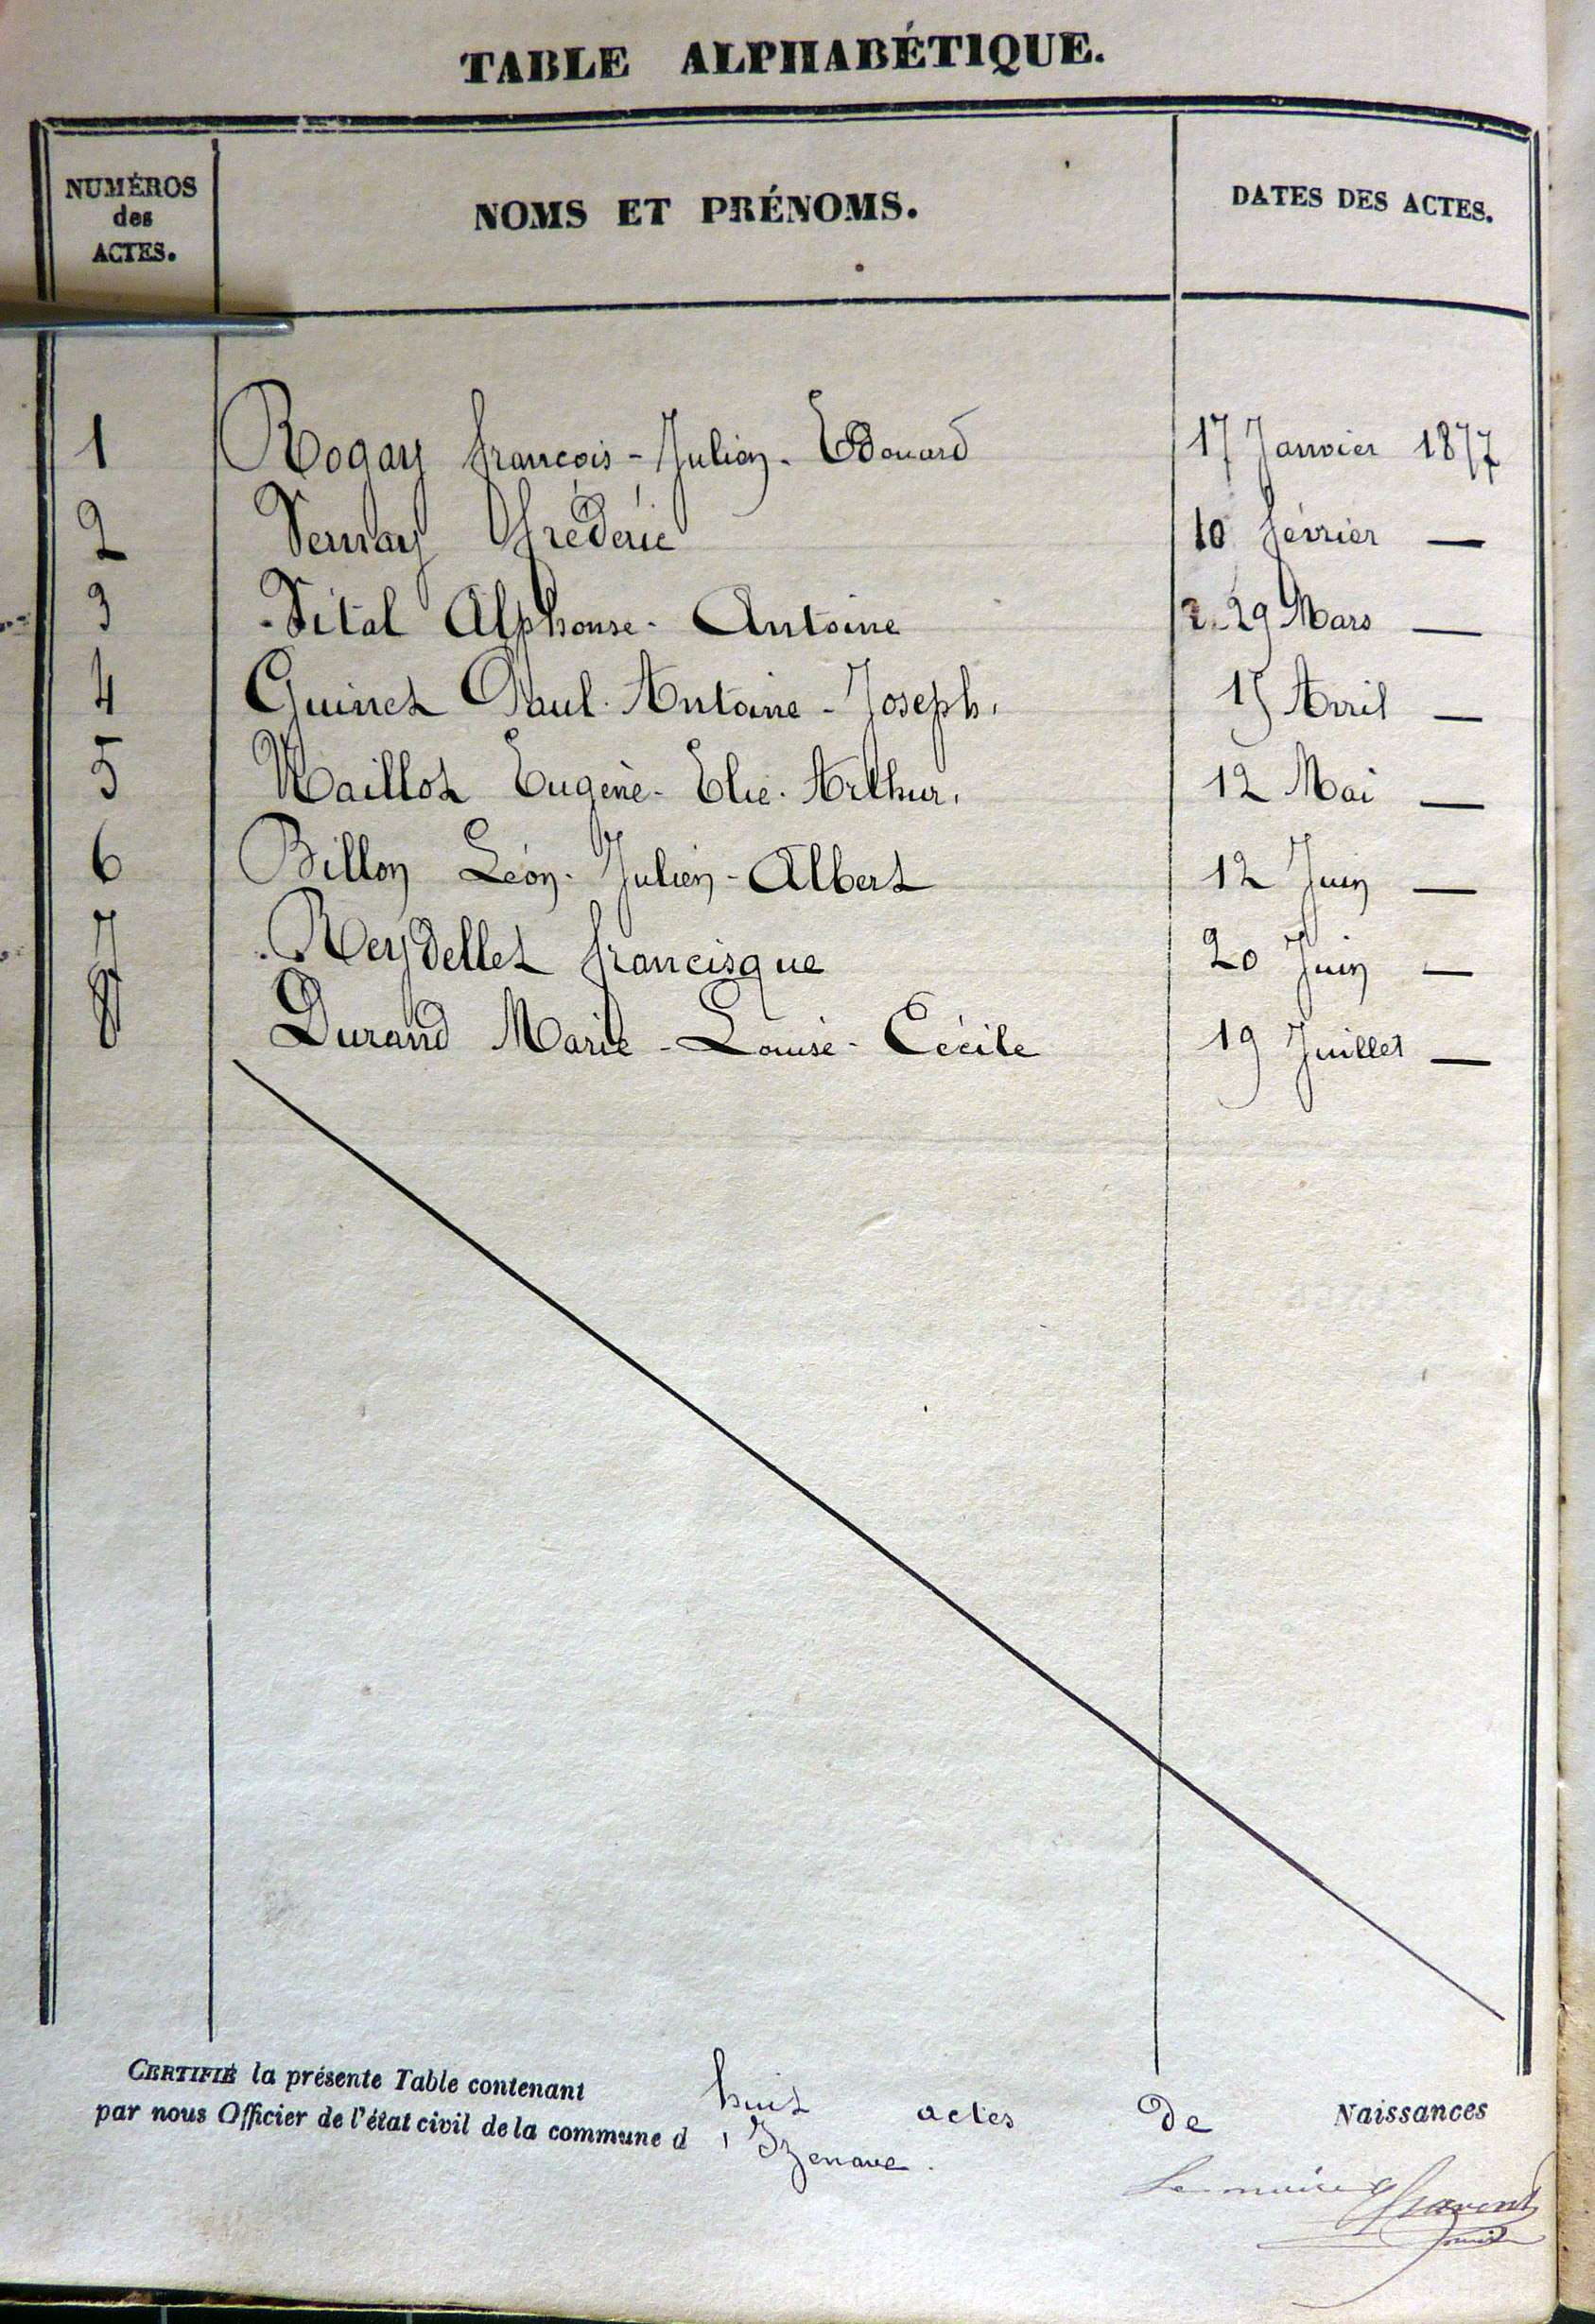 TABLE ALPHABÉTIQUE.
NUMÉROS
des
ACTES.
NOMS ET PRÉNOMS.
DATES DES ACTES.
1 Rogay françois - Julien - Edouard 17 Janvier 1877
2 Vernay frédéric 10 février —
3 Vital Alphonse - Antoine 29 Mars —
4 Guinet Paul - Antoine - Joseph. 15 Avril —
5 Maillot Eugène - Elie - Arthur. 12 Mai —
6 Billon Léon - Julien - Albert 12 Juin —
7 Reydellet francisque 20 Juin —
8 Durand Marie - Louise - Cécile 19 Juillet —
CERTIFIÉ la présente Table contenant huit actes de Naissances
par nous Officier de l'état civil de la commune d'Izenave.
Le maire